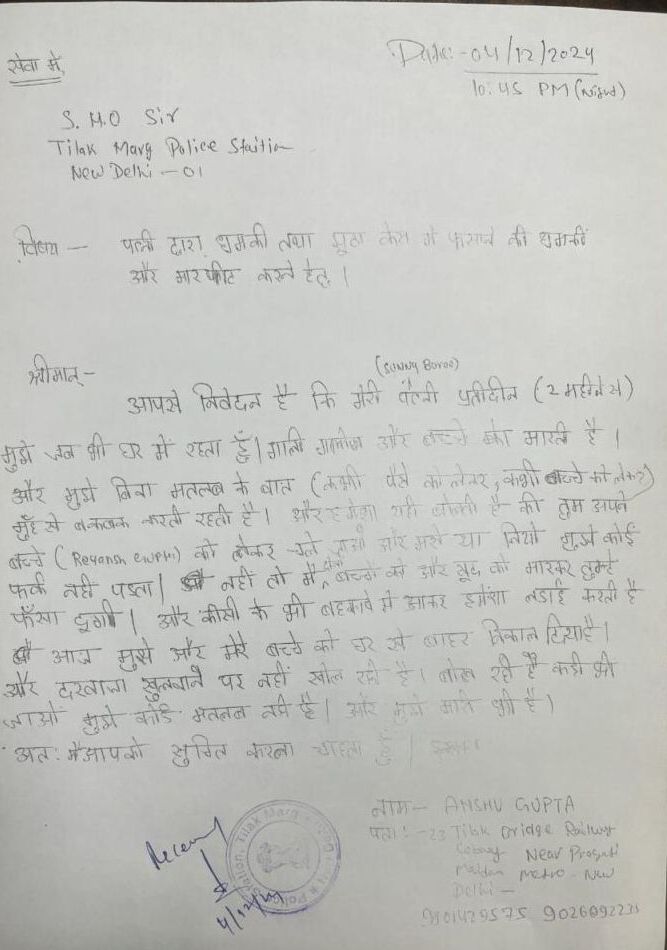 सेवा में,
Date:- 04/12/2024
10:45 PM (Night)
S.H.O Sir
Tilak Marg Police Staition
New Delhi - 01
विषय — पत्नी द्वारा धमकी तथा झूठा केस में फसाने की धमकी
और मारपीट करने हेतु।
श्रीमान् -
(Sunny Boroo)
आपसे निवेदन है कि मेरी पत्नी प्रतीदीन (2 महीने से)
मुझे जब भी घर में रहता हूँ। गाली गलौज और बच्चे को मारती है।
और मुझे बिना मतलब के बात (कभी पैसे को लेकर, कभी बच्चे को लेकर)
मुँह से बकबक करती रहती है। और हमेशा यही बोलती है की तुम अपने
बच्चे (Reyansh Gupta) को लेकर चले जाओ और मरो या जियो मुझे कोई
फर्क नही पडता। नहीं तो मैं बच्चे को और खुद को मारकर तुम्हे
फँसा दूगी। और कीसी के भी बहकावे में आकर हमेंशा लडाई करती है
आज मुझे और मेरे बच्चे को घर से बाहर निकाल दिया है।
और दरवाजा खुलवाने पर नहीं खोल रही है। बोल रही है कही भी
जाओ मुझे कोई मतलब नही है। और मुझे मारी भी है।
अत: मैं आपको सुचित करना चाहता हुँ।
नाम — ANSHU GUPTA
पता:- 23 Tilak Bridge Railway
Colony Near Pragati
Maidan Metro - New
Delhi —
9026092235
Tilak Marg
Police Station
4/12/24